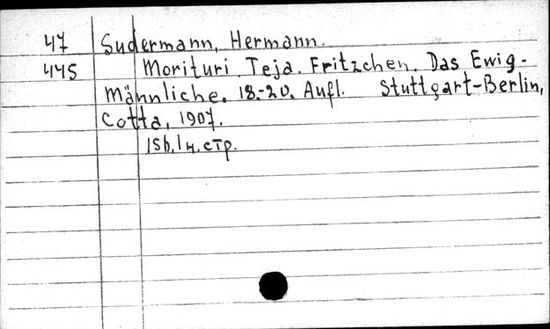 47 Sudermann, Hermann.
445 Morituri. Teja. Fritzchen. Das Ewig-
Männliche. 18.-20. Aufl. Stuttgart-Berlin,
Cotta, 1907.
156, 1 н. стр.